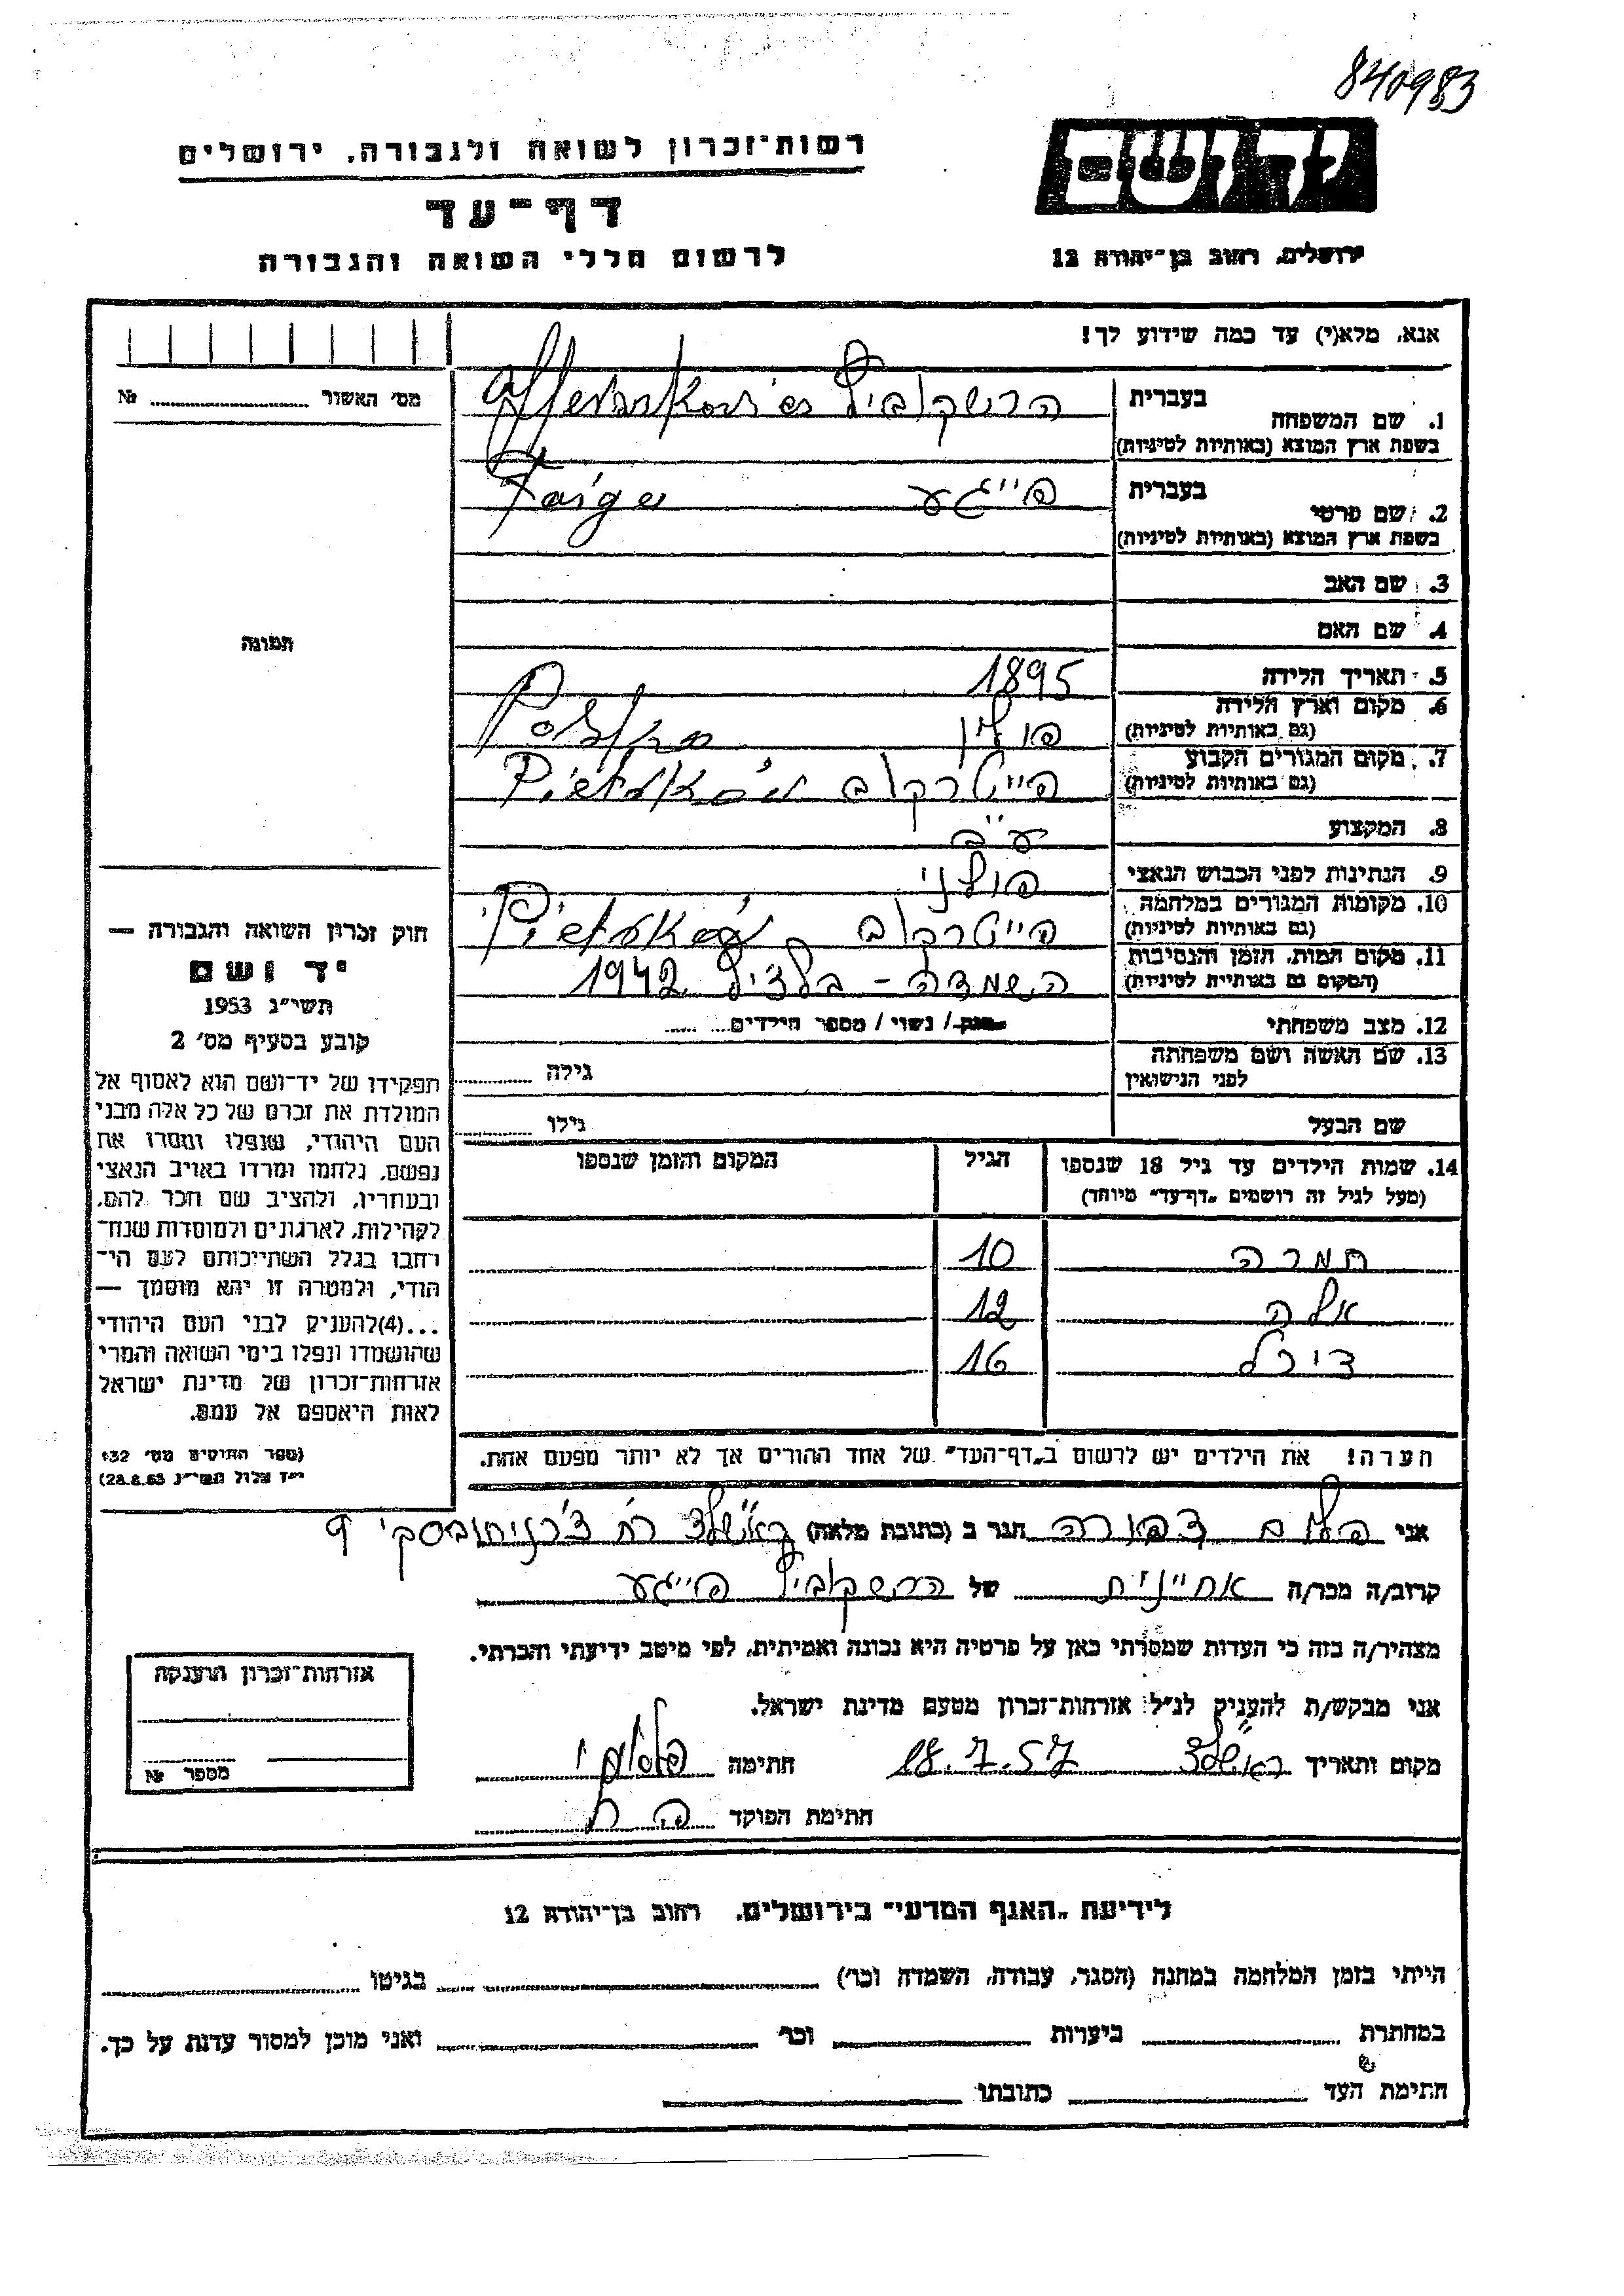 840983
יד ושם
רשות־זכרון לשואה ולגבורה, ירושלים
דף־עד
לרשום חללי השואה והגבורה
ירושלים, רחוב בן־יהודה 12
אנא, מלא(י) עד כמה שידוע לך!
מס׳ האשור № ........
1. שם המשפחה
בעברית הרשקוביץ
בשפת ארץ המוצא (באותיות לטיניות)
2. שם פרטי
בעברית פייגע Faiga
בשפת ארץ המוצא (באותיות לטיניות)
3. שם האב
4. שם האם
תמונה
5. תאריך הלידה 1895
6. מקום וארץ הלידה
(גם באותיות לטיניות) פולין Polska
7. מקום המגורים הקבוע
(גם באותיות לטיניות) פייטרקוב Pietrków
8. המקצוע עו״ב
9. הנתינות לפני הכבוש הנאצי פולני
10. מקומות המגורים במלחמה
(גם באותיות לטיניות) פייטרקוב Pietrków
11. מקום המות, הזמן והנסיבות
(המקום גם באותיות לטיניות) השמדה - בלציץ 1942
12. מצב משפחתי רווק / נשוי / מספר הילדים........
13. שם האשה ושם משפחתה
לפני הנישואין גילה ........
שם הבעל גילו ........
14. שמות הילדים עד גיל 18 שנספו הגיל המקום והזמן שנספו
(מעל לגיל זה רושמים „דף־עד״ מיוחד)
תמרה 10
אלה 12
דירל 16
הערה! את הילדים יש לרשום ב„דף־העד״ של אחד ההורים אך לא יותר מפעם אחת.
חוק זכרון השואה והגבורה —
יד ושם
תשי״ג 1953
קובע בסעיף מס׳ 2
תפקידו של יד־ושם הוא לאסוף אל
המולדת את זכרם של כל אלה מבני
העם היהודי, שנפלו ומסרו את
נפשם, נלחמו ומרדו באויב הנאצי
ובעוזריו, ולהציב שם וזכר להם,
לקהילות, לארגונים ולמוסדות שנח־
רבו בגלל השתייכותם לעם הי־
הודי, ולמטרה זו יהא מוסמך —
...(4)להעניק לבני העם היהודי
שהושמדו ונפלו בימי השואה והמרי
אזרחות־זכרון של מדינת ישראל
לאות היאספם אל עמם.
(ספר החוקים מס׳ 132
י״ז אלול תשי״ג 28.8.53)
אני בלום דבורה הגר ב (כתובת מלאה) ראשל״צ רח׳ צ׳רניחובסקי 9
קרוב/ה מכר/ה אחיינית של הרשקוביץ פייגע
מצהיר/ה בזה כי העדות שמסרתי כאן על פרטיה היא נכונה ואמיתית, לפי מיטב ידיעתי והכרתי.
אני מבקש/ת להעניק לנ״ל אזרחות־זכרון מטעם מדינת ישראל.
מקום ותאריך ראשל״צ 18.7.57 חתימה
חתימת הפוקד
אזרחות־זכרון הוענקה
מספר №
לידיעת „האגף המדעי״ בירושלים, רחוב בן־יהודה 12
הייתי בזמן המלחמה במחנה (הסגר, עבודה, השמדה וכו׳) ........ בגיטו ........
במחתרת ........ ביערות ........ וכו׳ ........ ואני מוכן למסור עדות על כך.
חתימת העד ........ כתובתו ........